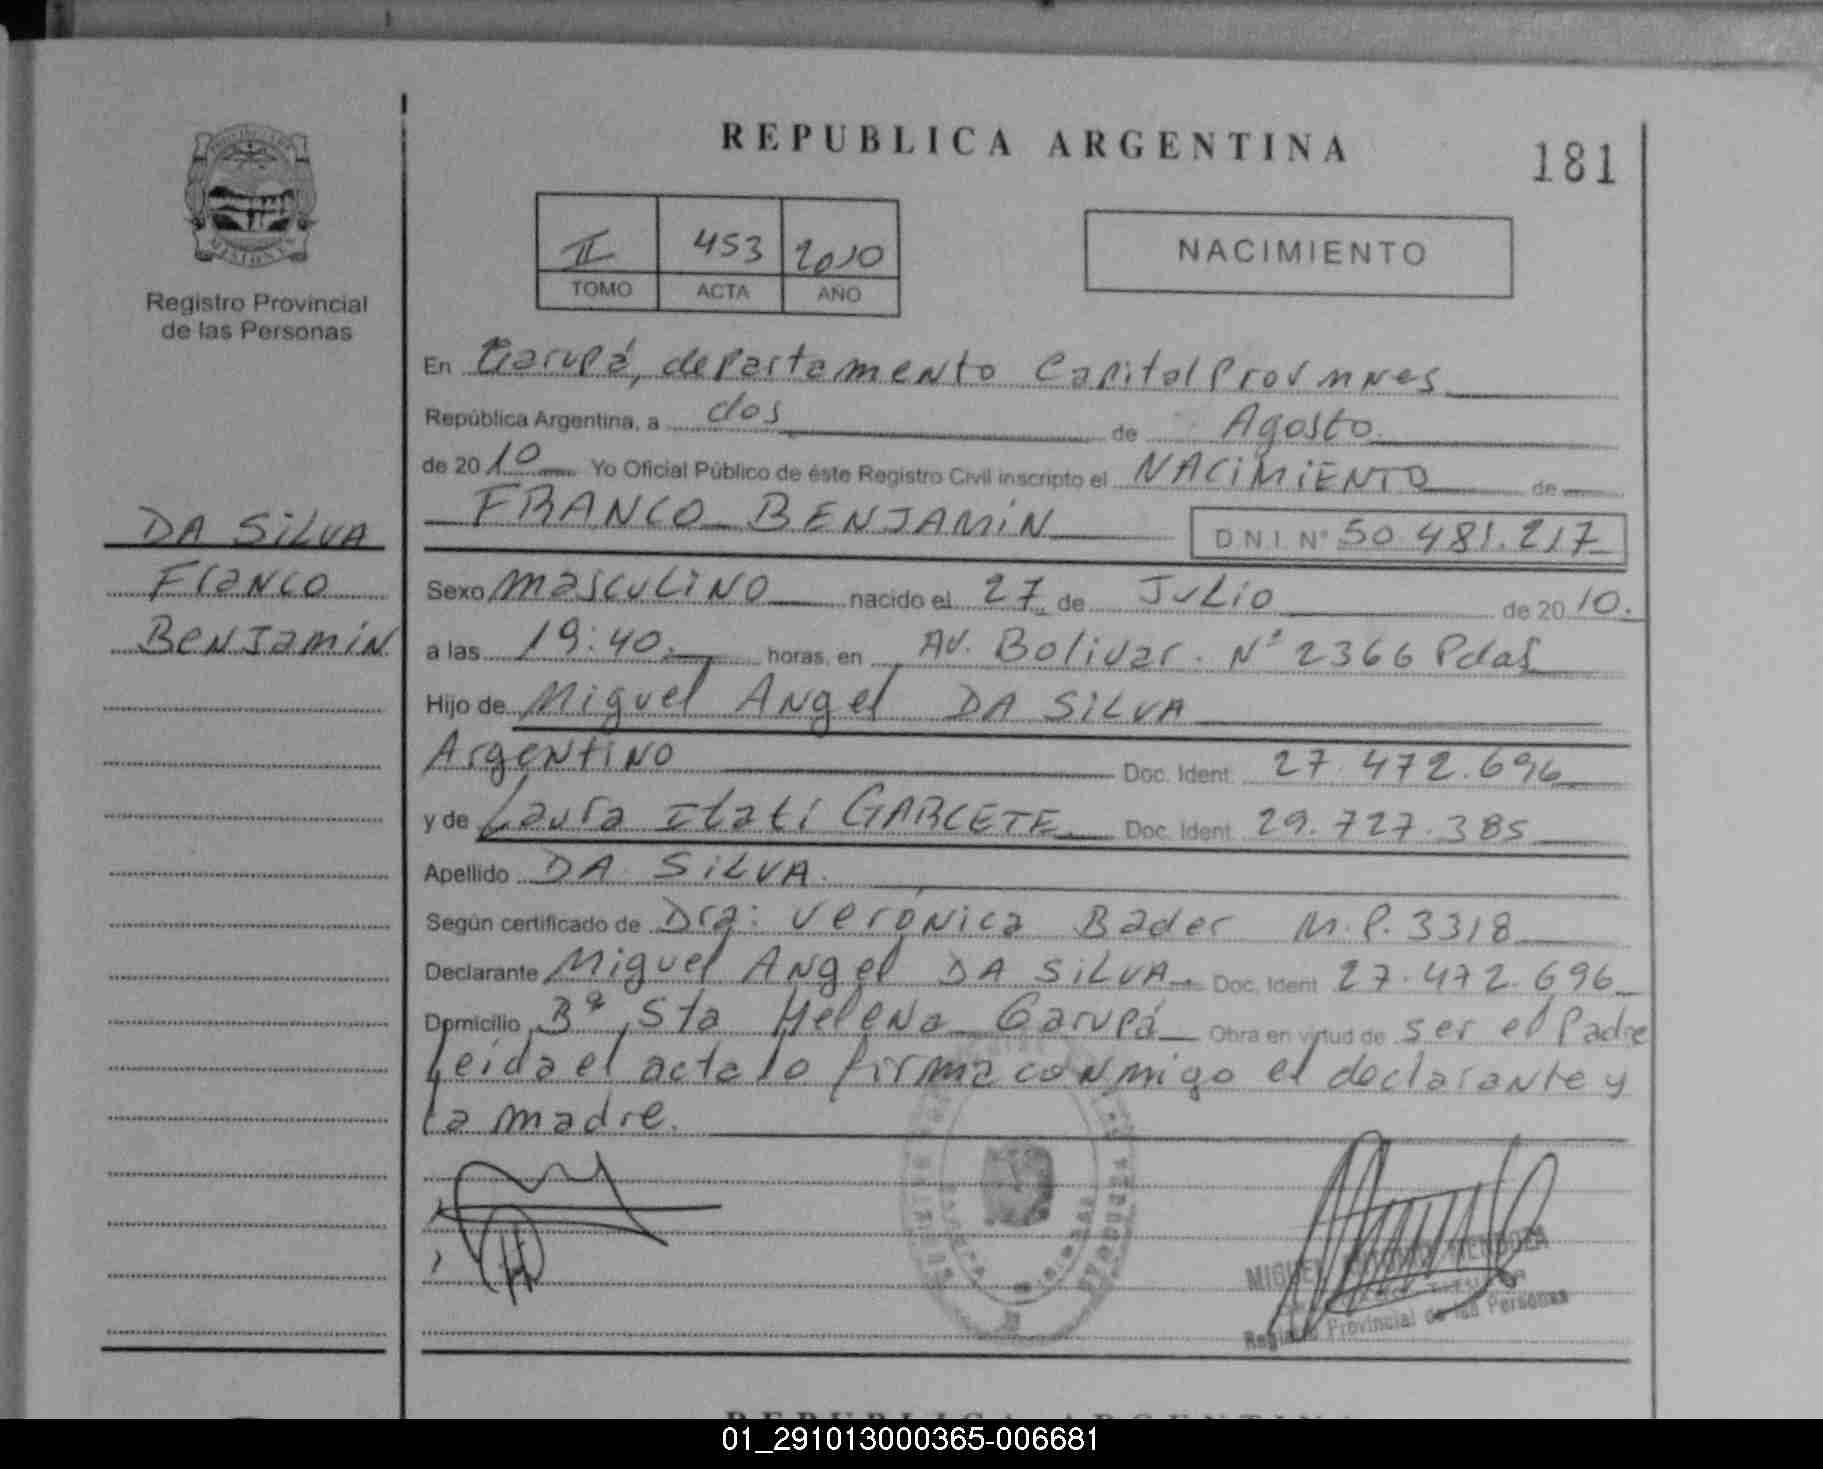 REPUBLICA ARGENTINA
181
II 453 2010
TOMO ACTA AÑO
NACIMIENTO
Registro Provincial
de las Personas
DA SILVA
Franco
Benjamín
En Garupá, departamento Capital Prov mnes
República Argentina, a dos de Agosto
de 2010 Yo Oficial Público de éste Registro Civil inscripto el NACIMIENTO de
FRANCO BENJAMÍN D.N.I. N° 50 481.217
Sexo masculino nacido el 27 de Julio de 2010.
a las 19:40. horas, en Av. Bolivar. N° 2366 Pdas
Hijo de Miguel Angel DA SILVA
Argentino Doc. Ident. 27.472.696
y de Laura Itatí GARCETE Doc. Ident. 29.727.385
Apellido DA SILVA
Según certificado de Dra: Verónica Bader M.P. 3318
Declarante Miguel Angel DA SILVA Doc. Ident 27.472.696
Domicilio Bº Sta Helena Garupá Obra en virtud de ser el Padre
Leída el acta lo firma conmigo el declarante y
la madre.
MIGUEL MENDOZA
Registro Provincial de las Personas
REPUBLICA ARGENTINA
01_291013000365-006681